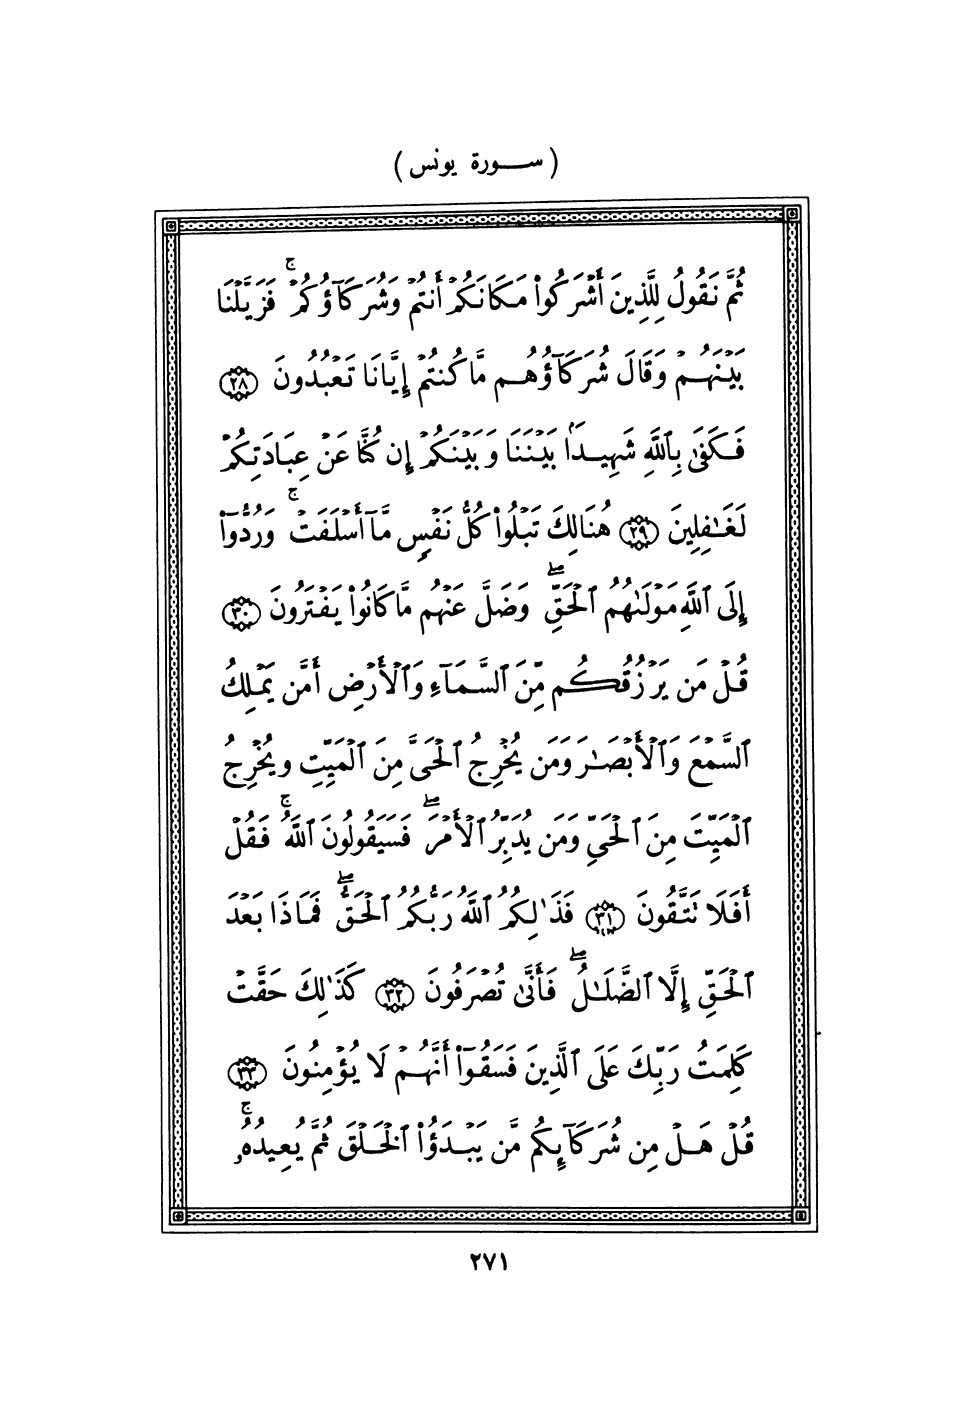 ( سورة يونس )
ثُمَّ نَقُولُ لِلَّذِينَ أَشْرَكُوا۟ مَكَانَكُمْ أَنتُمْ وَشُرَكَآؤُكُمْ ۚ فَزَيَّلْنَا
بَيْنَهُمْ وَقَالَ شُرَكَآؤُهُم مَّا كُنتُمْ إِيَّانَا تَعْبُدُونَ ٢٨
فَكَفَىٰ بِٱللَّهِ شَهِيدًۢا بَيْنَنَا وَبَيْنَكُمْ إِن كُنَّا عَنْ عِبَادَتِكُمْ
لَغَـٰفِلِينَ ٢٩ هُنَالِكَ تَبْلُوا۟ كُلُّ نَفْسٍ مَّآ أَسْلَفَتْ ۚ وَرُدُّوٓا۟
إِلَى ٱللَّهِ مَوْلَىٰهُمُ ٱلْحَقِّ ۖ وَضَلَّ عَنْهُم مَّا كَانُوا۟ يَفْتَرُونَ ٣٠
قُلْ مَن يَرْزُقُكُم مِّنَ ٱلسَّمَآءِ وَٱلْأَرْضِ أَمَّن يَمْلِكُ
ٱلسَّمْعَ وَٱلْأَبْصَـٰرَ وَمَن يُخْرِجُ ٱلْحَىَّ مِنَ ٱلْمَيِّتِ ويُخْرِجُ
ٱلْمَيِّتَ مِنَ ٱلْحَىِّ وَمَن يُدَبِّرُ ٱلْأَمْرَ ۖ فَسَيَقُولُونَ ٱللَّهُ ۚ فَقُلْ
أَفَلَا تَتَّقُونَ ٣١ فَذَٰلِكُمُ ٱللَّهُ رَبُّكُمُ ٱلْحَقُّ ۖ فَمَاذَا بَعْدَ
ٱلْحَقِّ إِلَّا ٱلضَّلَـٰلُ ۖ فَأَنَّىٰ تُصْرَفُونَ ٣٢ كَذَٰلِكَ حَقَّتْ
كَلِمَتُ رَبِّكَ عَلَى ٱلَّذِينَ فَسَقُوٓا۟ أَنَّهُمْ لَا يُؤْمِنُونَ ٣٣
قُلْ هَلْ مِن شُرَكَآئِكُم مَّن يَبْدَؤُا۟ ٱلْخَلْقَ ثُمَّ يُعِيدُهُۥ ۚ
٢٧١